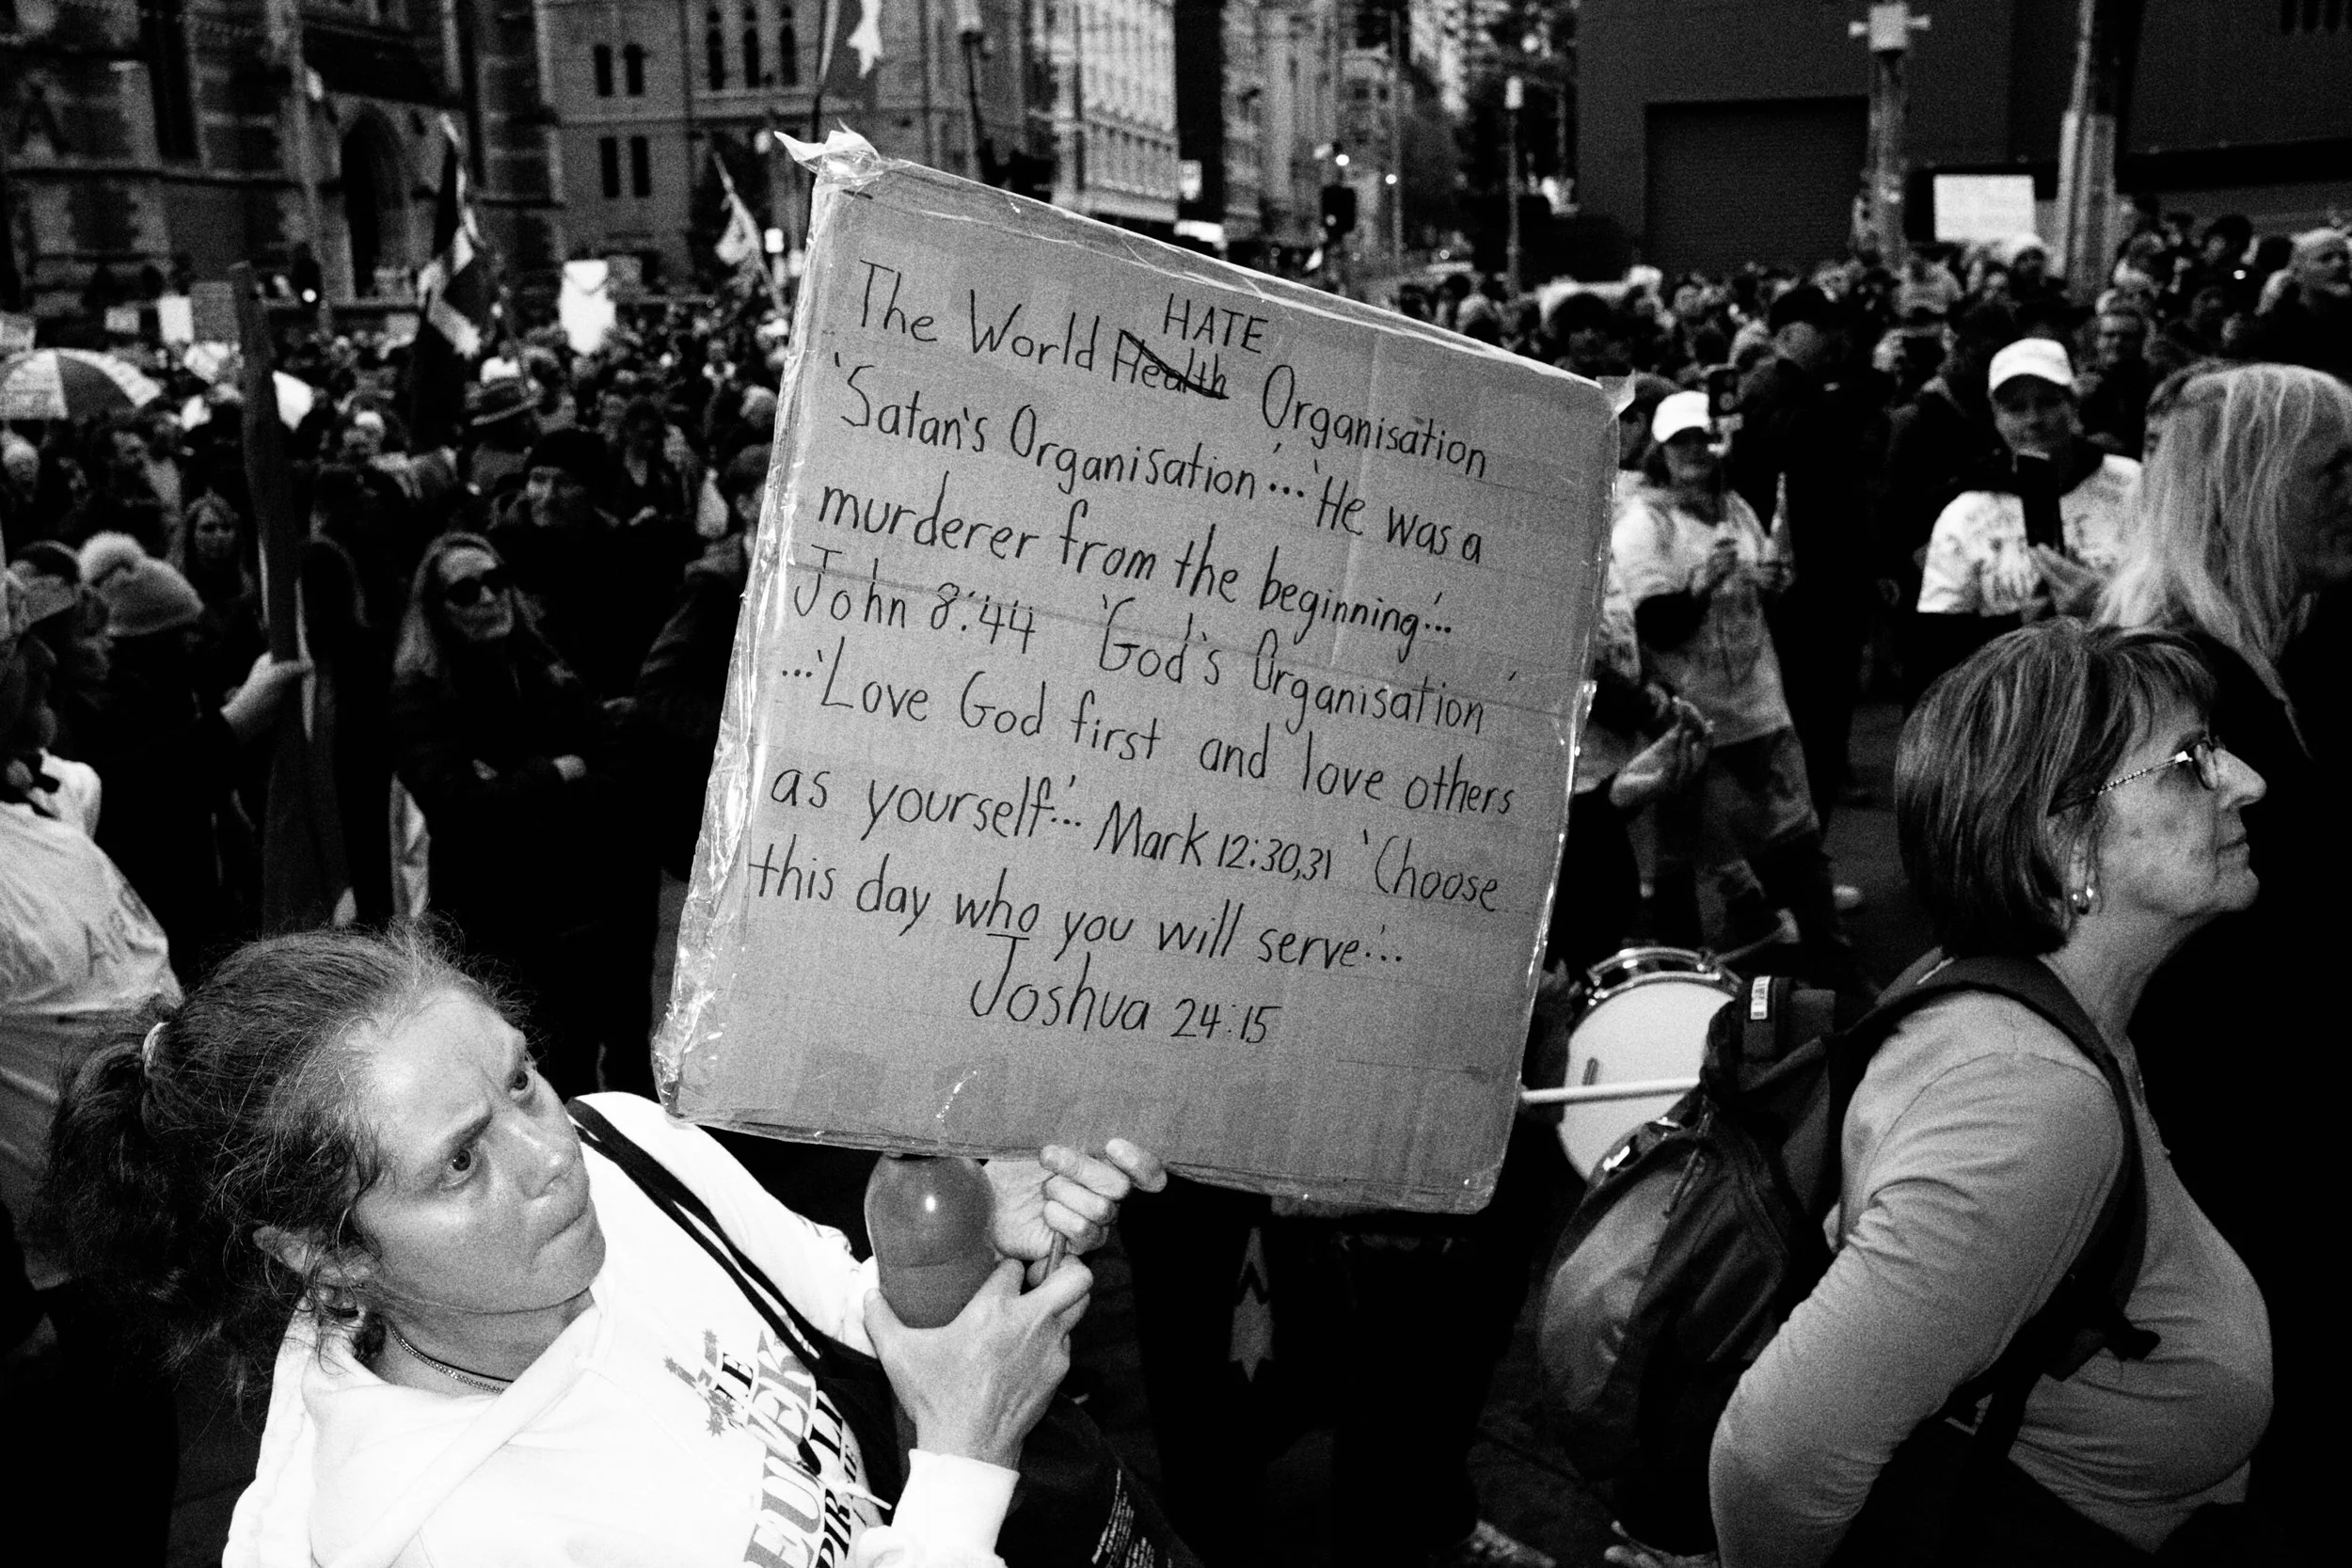 HATE
The World Health Organisation
'Satan's Organisation'...'He was a
murderer from the beginning'...
John 8:44 'God's Organisation'
...'Love God first and love others
as yourself'... Mark 12:30,31 'Choose
this day who you will serve'...
Joshua 24:15